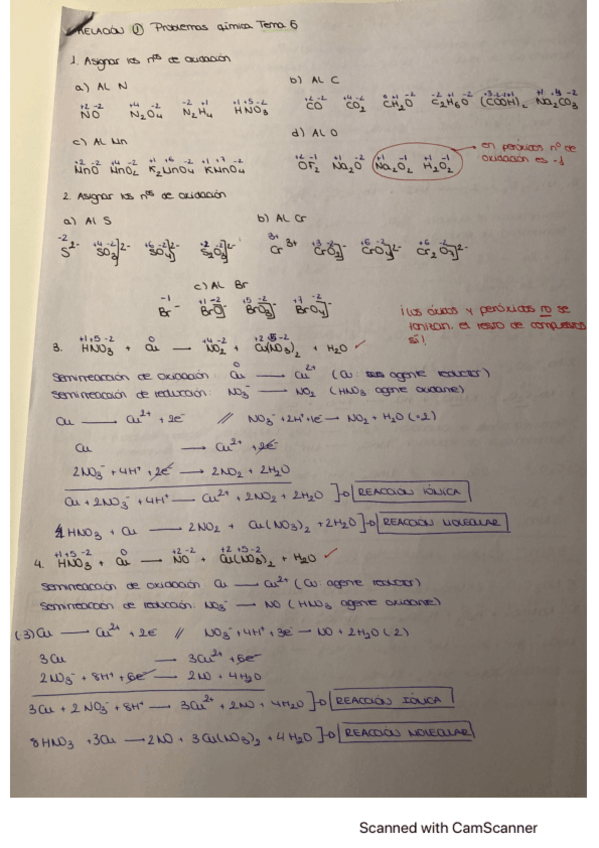 RELACIÓN ① Problemas química Tema 6
1. Asignar los nºs de oxidación
a) Al N
b) Al C
+2 -2 +4 -2 -2 +1 +1+5-2
NO N2O4 N2H4 HNO3
CO CO2 CH2O C2H6O (COOH)2 Na2CO3
c) Al Mn
d) Al O
MnO MnO2 K2MnO4 KMnO4
OF2 Na2O Na2O2 H2O2
en peróxidos nº de
oxidación es -1
2. Asignar los nºs de oxidación
a) Al S
b) Al Cr
S2- SO3]2- SO4]2- S2O3]2-
Cr3+ CrO2]- CrO4]2- Cr2O7]2-
c) Al Br
Br- BrO]- BrO3]- BrO4]-
¡Los óxidos y peróxidos no se
ionizan, el resto de compuestos
sí!
+1+5-2 0 +4-2 +2+5-2
3. HNO3 + Cu → NO2 + Cu(NO3)2 + H2O ✓
Semirreación de oxidación: Cu → Cu2+ (Cu agente reductor)
Semirreación de reducción: NO3- → NO2 (HNO3 agente oxidante)
Cu → Cu2+ + 2e- // NO3- + 2H+ + 1e- → NO2 + H2O (·2)
Cu → Cu2+ + 2e-
2NO3- + 4H+ + 2e- → 2NO2 + 2H2O
Cu + 2NO3- + 4H+ → Cu2+ + 2NO2 + 2H2O ]→ REACCIÓN IÓNICA
4HNO3 + Cu → 2NO2 + Cu(NO3)2 + 2H2O ]→ REACCIÓN MOLECULAR
+1+5-2 0 +2-2 +2+5-2
4. HNO3 + Cu → NO + Cu(NO3)2 + H2O ✓
Semirreación de oxidación Cu → Cu2+ (Cu agente reductor)
Semirreación de reducción: NO3- → NO (HNO3 agente oxidante)
(3) Cu → Cu2+ + 2e- // NO3- + 4H+ + 3e- → NO + 2H2O (2)
3Cu → 3Cu2+ + 6e-
2NO3- + 8H+ + 6e- → 2NO + 4H2O
3Cu + 2NO3- + 8H+ → 3Cu2+ + 2NO + 4H2O ]→ REACCIÓN IÓNICA
8HNO3 + 3Cu → 2NO + 3Cu(NO3)2 + 4H2O ]→ REACCIÓN MOLECULAR
Scanned with CamScanner